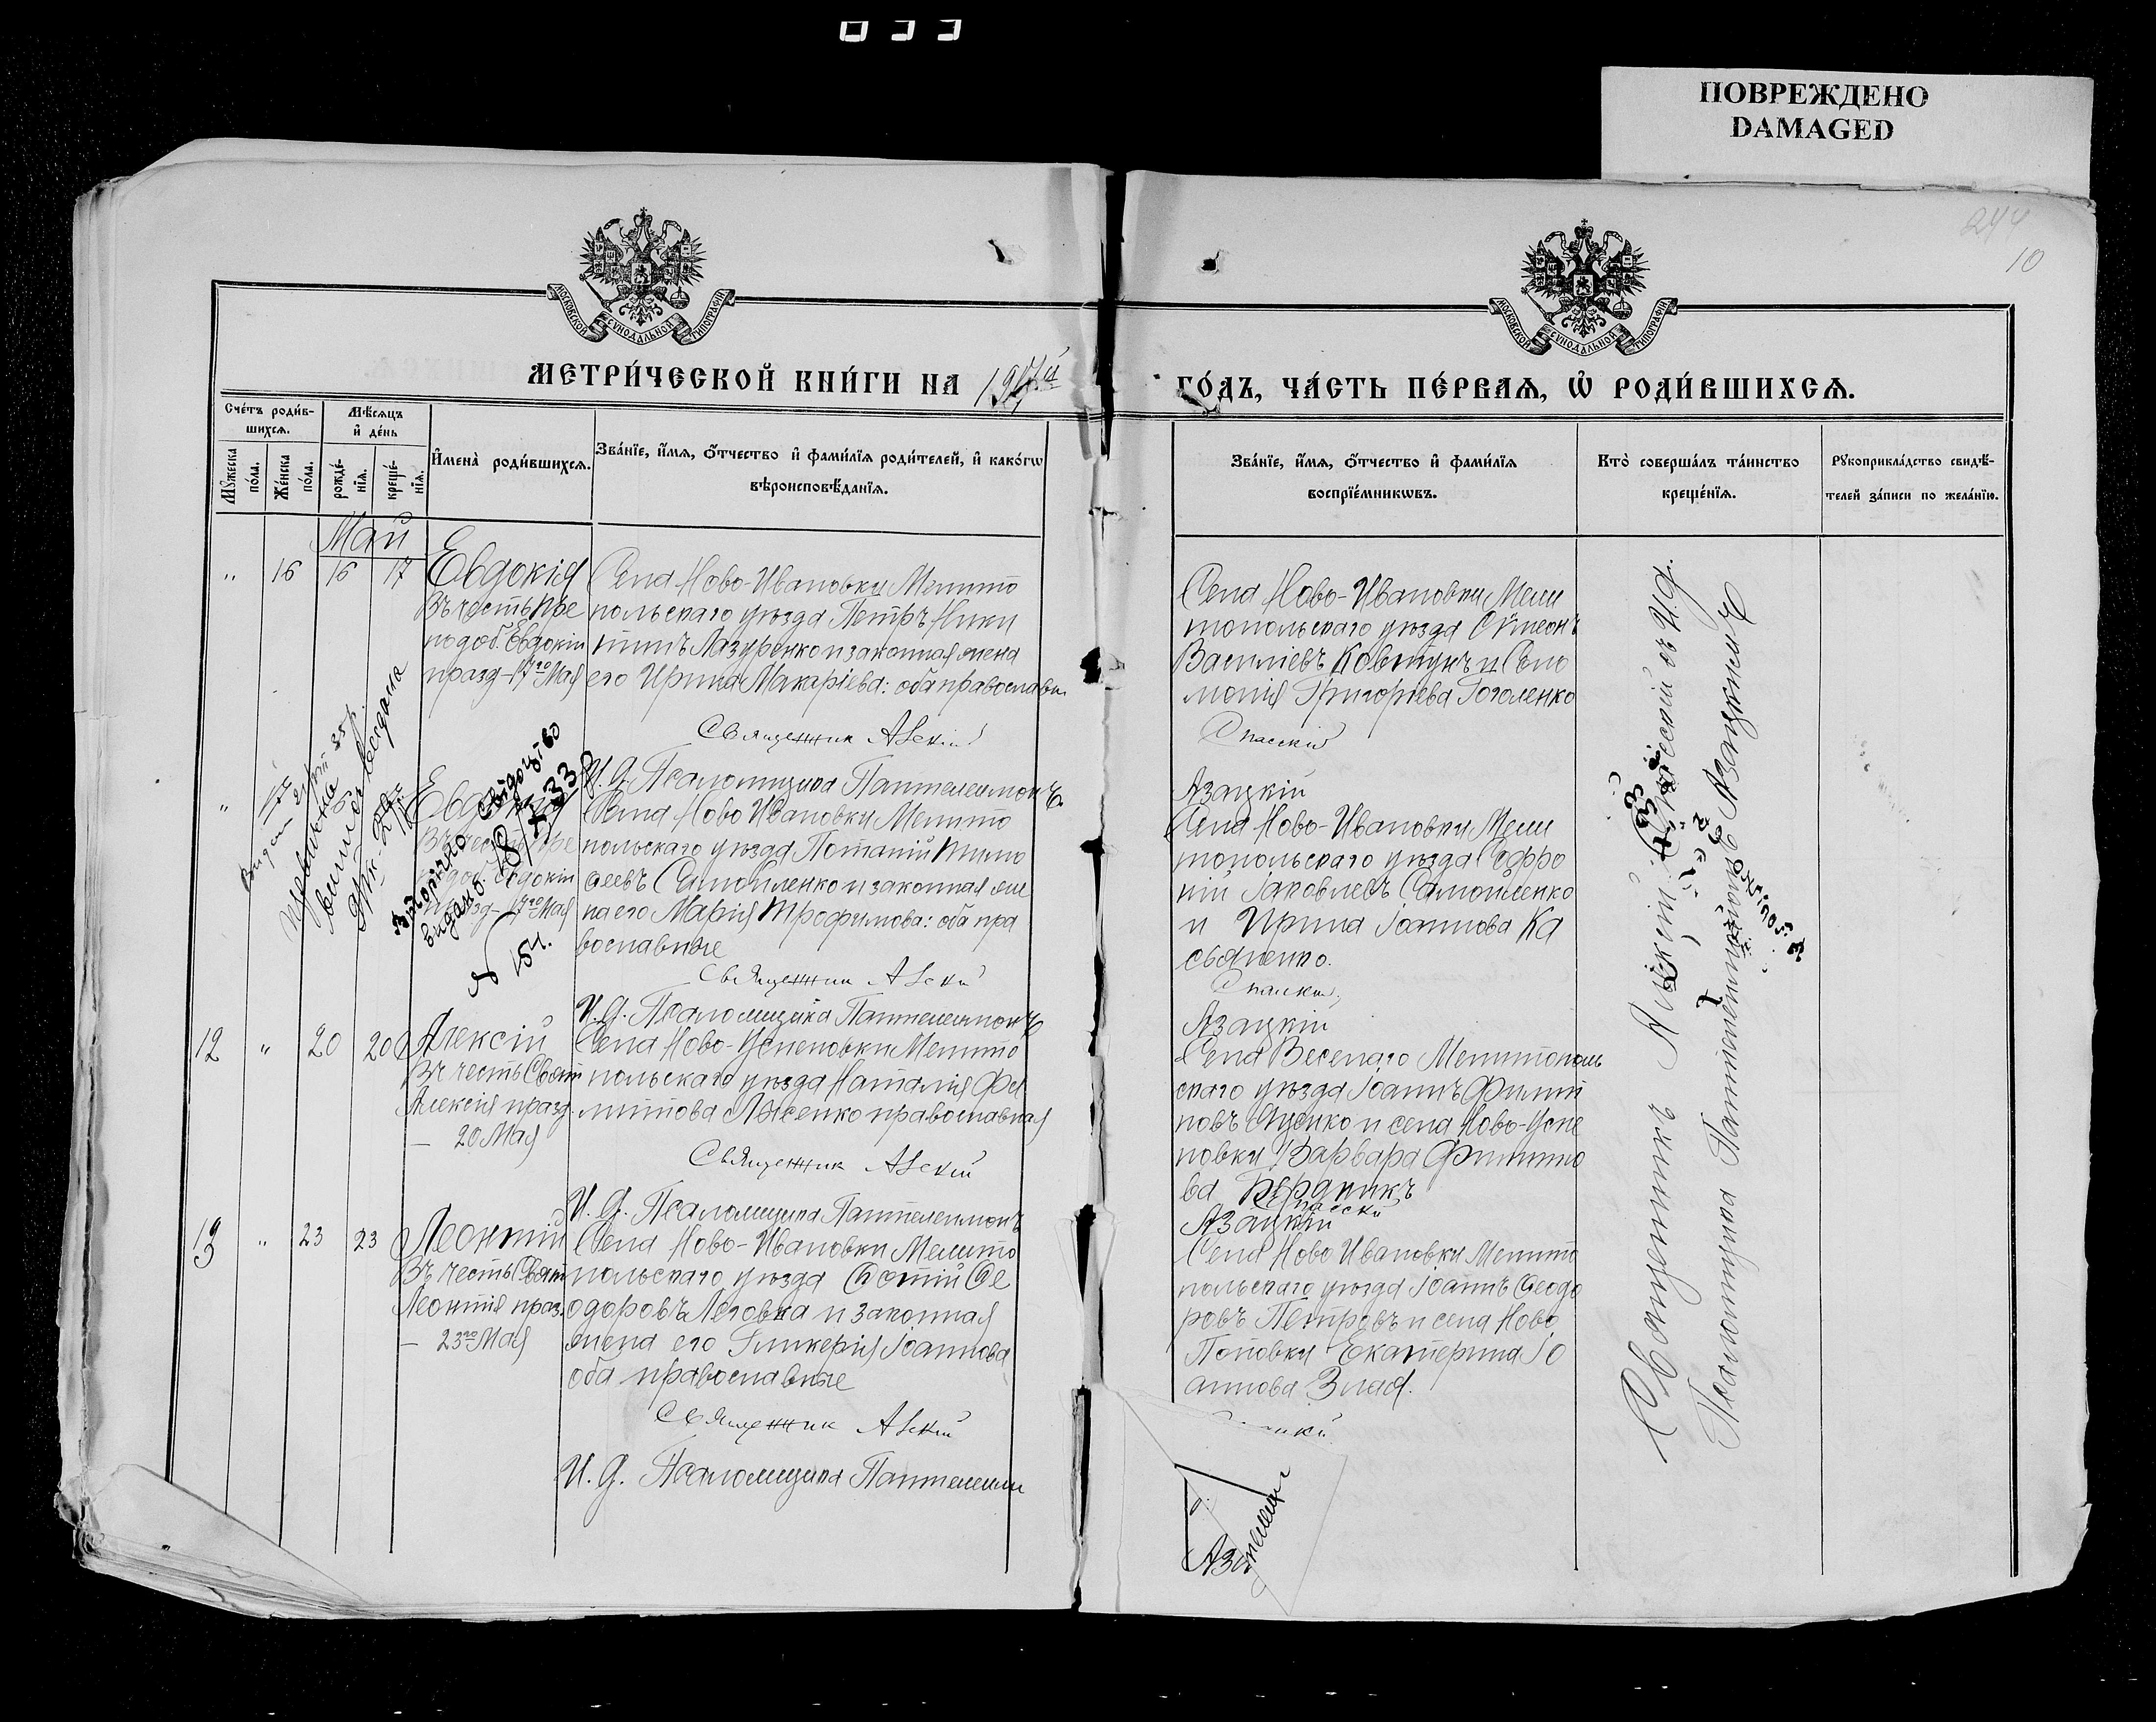 ПОВРЕЖДЕНО
DAMAGED
244
10
МОСКОВСКОЙ СѴНОДАЛЬНОЙ ТИПОГРАФІИ
МОСКОВСКОЙ СѴНОДАЛЬНОЙ ТИПОГРАФІИ
МЕТРИ́ЧЕСКОЙ КНИ́ГИ НА
ГО́ДЪ, ЧА́СТЬ ПЕ́РВАЯ, Ѡ҆ РОДИ́ВШИХСЯ.
Сче́тъ роди́в-
шихся.
Мѣ́сяцъ
и҆ де́нь
Мꙋжеска по́ла.
Же́нска по́ла.
рожде́-нїя.
креще́-нїя.
И҆мена̀ роди́вшихся.
Зва́нїе, и҆́мя, ѻ҆́тчество и҆ фами́лїя роди́телей, и҆ како́гѡ
вѣроисповѣ́данїя.
Зва́нїе, и҆́мя, ѻ҆́тчество и҆ фами́лїя
воспрїе́мникѡвъ.
Кто̀ соверша́лъ та́инство
креще́нїя.
Рꙋкоприкла́дство свидѣ́-
телей за́писи по жела́нїю.
Май
" 16 16 17
Евдокія
Въ честь Пре
подоб. Евдокіи
празд. 17го Мая
Села Ново-Ивановки Мелито
польскаго уѣзда Петръ Ники
тинъ Лазуренко и законная жена
его Ирина Макаріева: оба православн.
Священник
И. Д. Псаломщика Пантелеимонъ
Села Ново-Ивановки Мели
топольскаго уѣзда Сѵмеонъ
Василіевъ Ковтунъ и Соло
монія Григоріева Гоголенко
Спасскій
Азацкій
" 17
Евдокія
Въ честь Пре
подоб. Евдокіи
празд. 17го Мая
Села Ново Ивановки Мелито
польскаго уѣзда Потапій Тимо
ѳеевъ Самойленко и законная же
на его Марія Трофимова: оба пра
вославные
Священник
И. Д. Псаломщика Пантелеимонъ
Села Ново-Ивановки Мели
топольскаго уѣзда Софро
ній Іаковлевъ Самойленко
и Ирина Іоаннова Ка
сьяненко.
Спасскій
Азацкій
Вторично свидоцтво
видано
12 " 20 20
Алексій
Въ честь Свят.
Алексія празд.
— 20 Мая
Села Ново-Успеновки Мелито
польскаго уѣзда Наталія Фи
липпова Луценко православная
Священник
И. Д. Псаломщика Пантелеимонъ
Села Веселаго Мелитополь
скаго уѣзда Іоаннъ Филип
повъ Луценко и села Ново-Успе
новки Варвара Филиппо
ва Бердникъ
Спасскій
Азацкій
13 " 23 23
Леонтій
Въ честь Свят.
Леонтія праз.
— 23го Мая
Села Ново-Ивановки Мелито
польскаго уѣзда Ѳе
одоровъ и законная
жена его Гликерія Іоаннова
оба православные
Священник
И. Д. Псаломщика Пантелеим
Села Ново Ивановки Мелито
польскаго уѣзда Іоаннъ Ѳеодо
ровъ Петровъ и села Ново
Поповки Екатерина Іо
аннова Злая.
Священникъ Алексій Спасскій съ И. Д.
Псаломщика Пантелеимономъ Азацкимъ